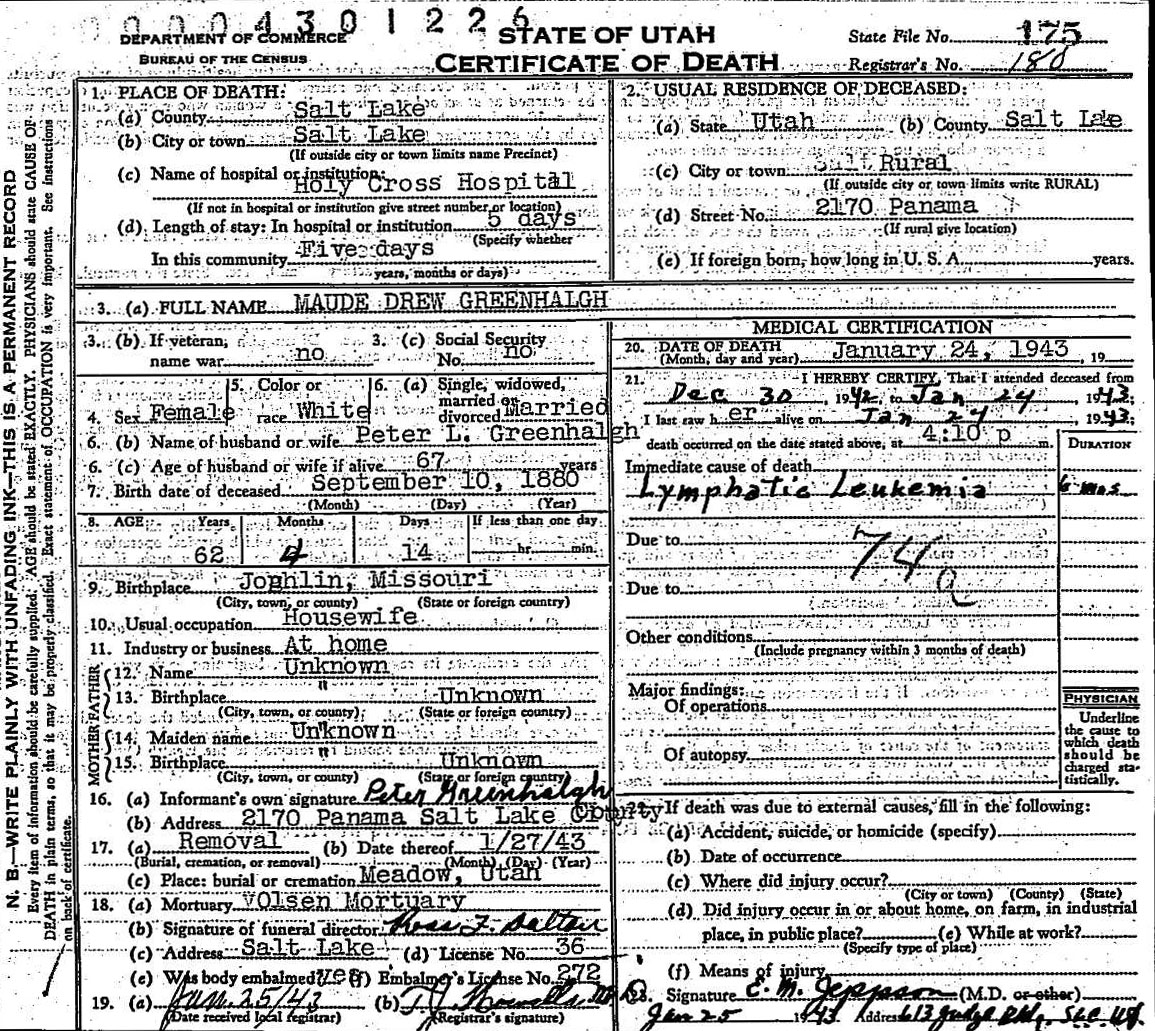 0004301226
DEPARTMENT OF COMMERCE
BUREAU OF THE CENSUS
STATE OF UTAH
CERTIFICATE OF DEATH
State File No. 175
Registrar's No. 180
N. B.—WRITE PLAINLY WITH UNFADING INK—THIS IS A PERMANENT RECORD
Every item of information should be carefully supplied. AGE should be stated EXACTLY. PHYSICIANS should state CAUSE OF
DEATH in plain terms, so that it may be properly classified. Exact statement of OCCUPATION is very important. See instructions
on back of certificate.
1. PLACE OF DEATH:
(a) County Salt Lake
(b) City or town Salt Lake
(If outside city or town limits name Precinct)
(c) Name of hospital or institution:
Holy Cross Hospital
(If not in hospital or institution give street number or location)
(d) Length of stay: In hospital or institution 5 days
(Specify whether
In this community Five days
years, months or days)
2. USUAL RESIDENCE OF DECEASED:
(a) State Utah (b) County Salt Lake
(c) City or town Rural
(If outside city or town limits write RURAL)
(d) Street No. 2170 Panama
(If rural give location)
(e) If foreign born, how long in U. S. A. years.
3. (a) FULL NAME MAUDE DREW GREENHALGH
3. (b) If veteran, name war no
3. (c) Social Security No. no
4. Sex Female
5. Color or race White
6. (a) Single, widowed, married or divorced Married
6. (b) Name of husband or wife Peter L. Greenhalgh
6. (c) Age of husband or wife if alive 67 years
7. Birth date of deceased September 10, 1880
(Month) (Day) (Year)
8. AGE: Years Months Days If less than one day
62 4 14 hr. min.
9. Birthplace Jophlin, Missouri
(City, town, or county) (State or foreign country)
10. Usual occupation Housewife
11. Industry or business At home
FATHER
12. Name Unknown
13. Birthplace " Unknown
(City, town, or county) (State or foreign country)
MOTHER
14. Maiden name Unknown
15. Birthplace " Unknown
(City, town, or county) (State or foreign country)
16. (a) Informant's own signature Peter Greenhalgh
(b) Address 2170 Panama Salt Lake County
17. (a) Removal (b) Date thereof 1/27/43
(Burial, cremation, or removal) (Month) (Day) (Year)
(c) Place: burial or cremation Meadow, Utah
18. (a) Mortuary Volsen Mortuary
(b) Signature of funeral director
(c) Address Salt Lake (d) License No. 36
(e) Was body embalmed? yes (f) Embalmer's License No. 272
19. (a) Jan. 25/43 (b) T. J. Howells M D
(Date received local registrar) (Registrar's signature)
MEDICAL CERTIFICATION
20. DATE OF DEATH
(Month, day and year) January 24, 1943, 19
21. I HEREBY CERTIFY, That I attended deceased from
Dec 30, 1942 to Jan 24, 1943;
I last saw her alive on Jan 24, 1943;
death occurred on the date stated above, at 4:10 p m.
DURATION
Immediate cause of death
Lymphatic Leukemia 6 mos
Due to 74a
Due to
Other conditions
(Include pregnancy within 3 months of death)
Major findings:
Of operations
Of autopsy
PHYSICIAN
Underline
the cause to
which death
should be
charged sta-
tistically.
22. If death was due to external causes, fill in the following:
(a) Accident, suicide, or homicide (specify)
(b) Date of occurrence
(c) Where did injury occur?
(City or town) (County) (State)
(d) Did injury occur in or about home, on farm, in industrial
place, in public place? (e) While at work?
(Specify type of place)
(f) Means of injury
23. Signature E. M. Jeppson (M.D. or other)
Jan 25 1943 Address 613 Judge Bldg, SLC Ut.